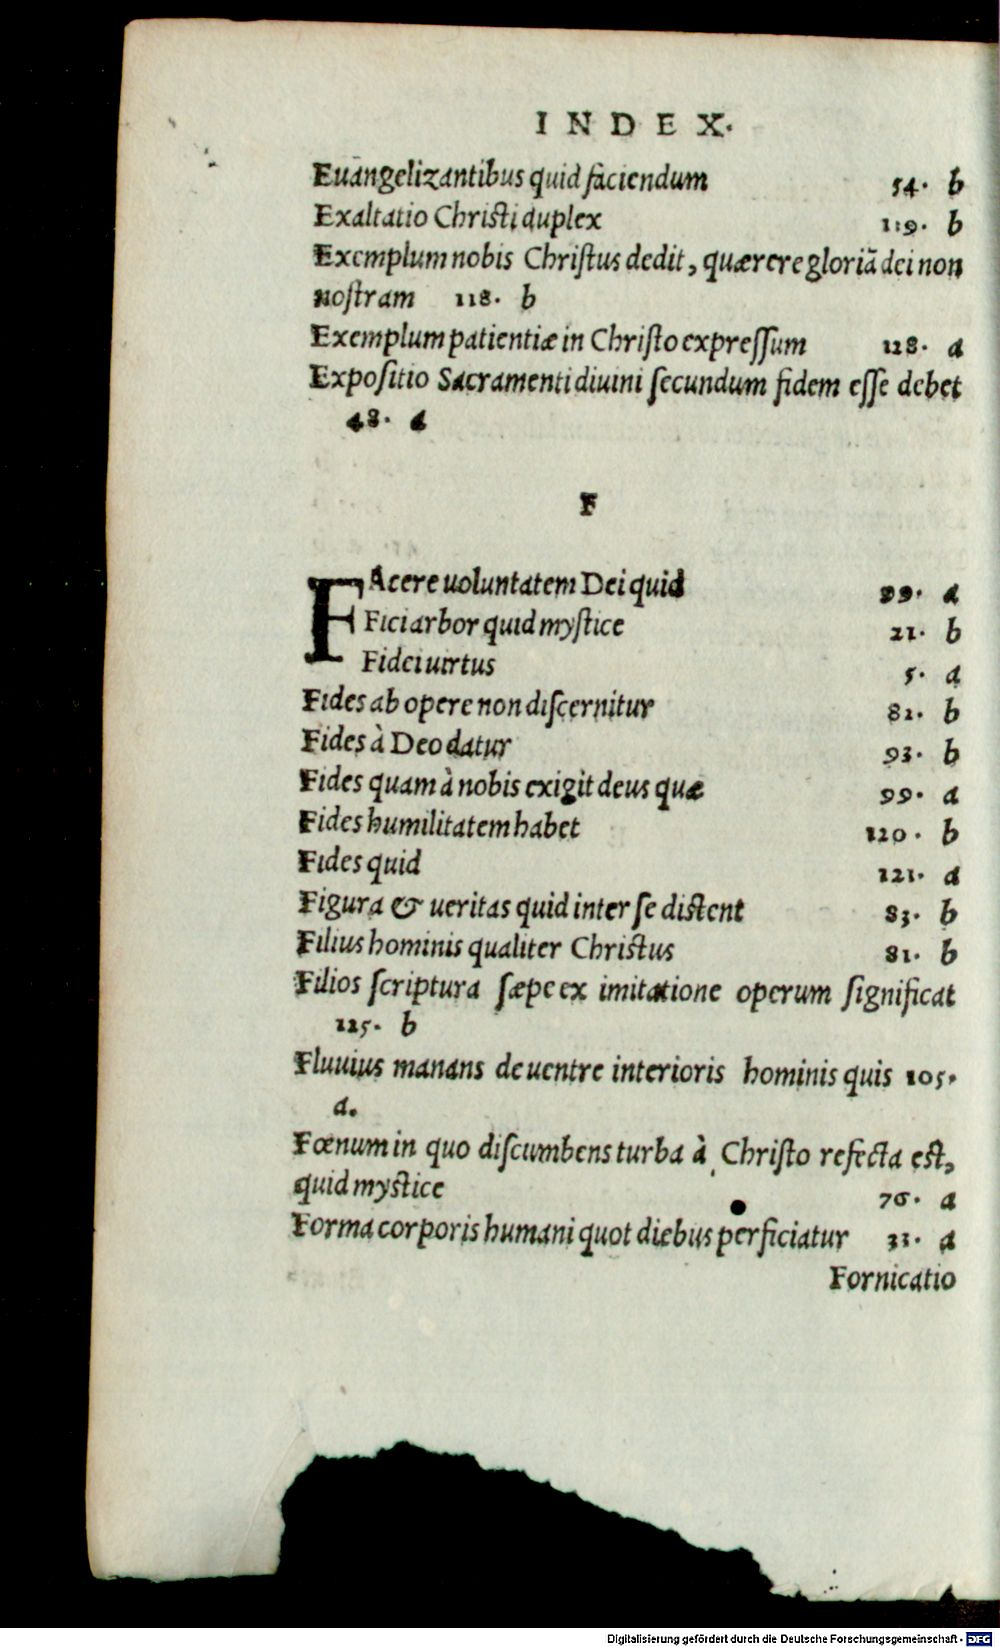 INDEX.
Euangelizantibus quid faciendum 54. b
Exaltatio Christi duplex 119. b
Exemplum nobis Christus dedit, quærere gloriā dei non
nostram 118. b
Exemplum patientiæ in Christo expressum 128. a
Expositio Sacramenti diuini secundum fidem esse debet
48. a
F
FAcere uoluntatem Dei quid 99. a
Fici arbor quid mystice 21. b
Fidei uirtus 5. a
Fides ab opere non discernitur 82. b
Fides à Deo datur 93. b
Fides quam à nobis exigit deus quæ 99. a
Fides humilitatem habet 120. b
Fides quid 121. a
Figura & ueritas quid inter se distent 83. b
Filius hominis qualiter Christus 81. b
Filios scriptura sæpe ex imitatione operum significat
125. b
Fluuius manans de uentre interioris hominis quis 105.
a.
Fœnum in quo discumbens turba à Christo refecta est,
quid mystice 76. a
Forma corporis humani quot diebus perficiatur 33. a
Fornicatio
Digitalisierung gefördert durch die Deutsche Forschungsgemeinschaft - DFG